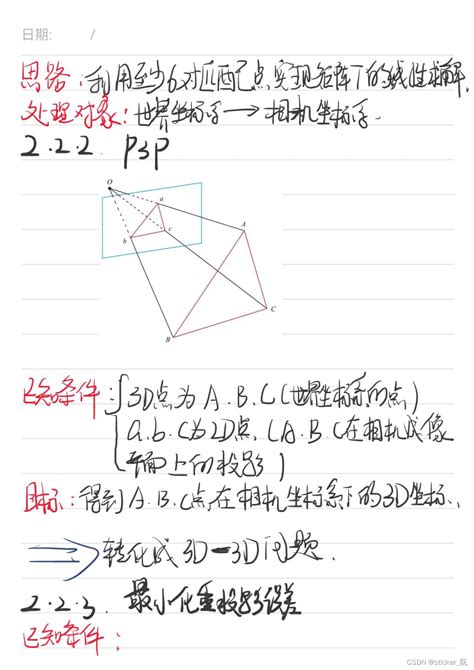 日期: /
思路：利用至少6对匹配点,实现矩阵T的线性求解,
处理对象：世界坐标系→相机坐标系.
2.2.2. P3P
O
a
A
b
c
C
B
已知条件：{3D点为A.B.C(世界坐标系的点)
a.b.c为2D点,(A.B.C在相机成像
平面上的投影)
目标：得到A.B.C点,在相机坐标系下的3D坐标.
⇒转化成3D-3D问题.
2.2.3. 最小化重投影误差
已知条件：
CSDN @sticker_阮